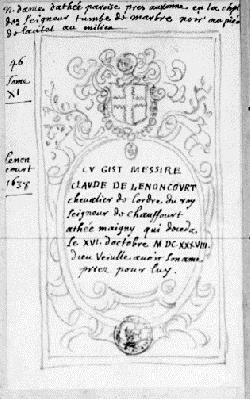 n. dame d'athée paroise pres auxonne en la chap
des Seigneur tumbe de marbre noir au pie
de l'autel au milieu
46
tome
XI
Lenon
court
1638
CY GIST MESSIRE
CLAUDE DE LENONCOURT
chevalier de lordre du roy
seigneur de chauffourt
athée maigny qui deceda
le XVI. doctobre M DC XXXVIII.
dieu veuille avoir son ame
priez pour luy.